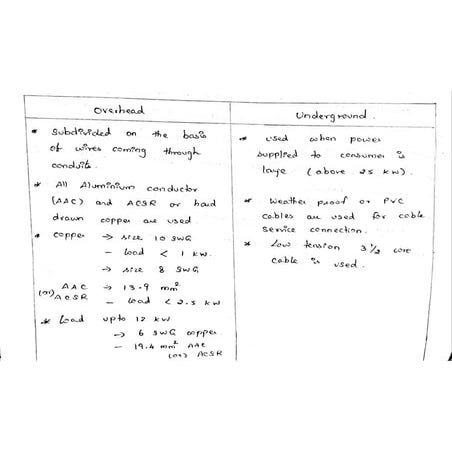 Overhead
* Subdivided on the basis
of wires coming through
conduits.
* All Aluminium conductor
(AAC) and ACSR or hard
drawn copper are used.
* copper → size 10 SWG
– load < 1 kW.
→ size 8 SWG
(or) AAC → 13.9 mm²
ACSR – load < 2.5 kW
* Load upto 12 kW
→ 6 SWG copper
– 19.4 mm² AAC
(or) ACSR
Underground.
* used when power
supplied to consumer is
large (above 25 kW).
* Weather proof or PVC
cables are used for cable
service connection.
* Low tension 3 1/2 core
cable is used.